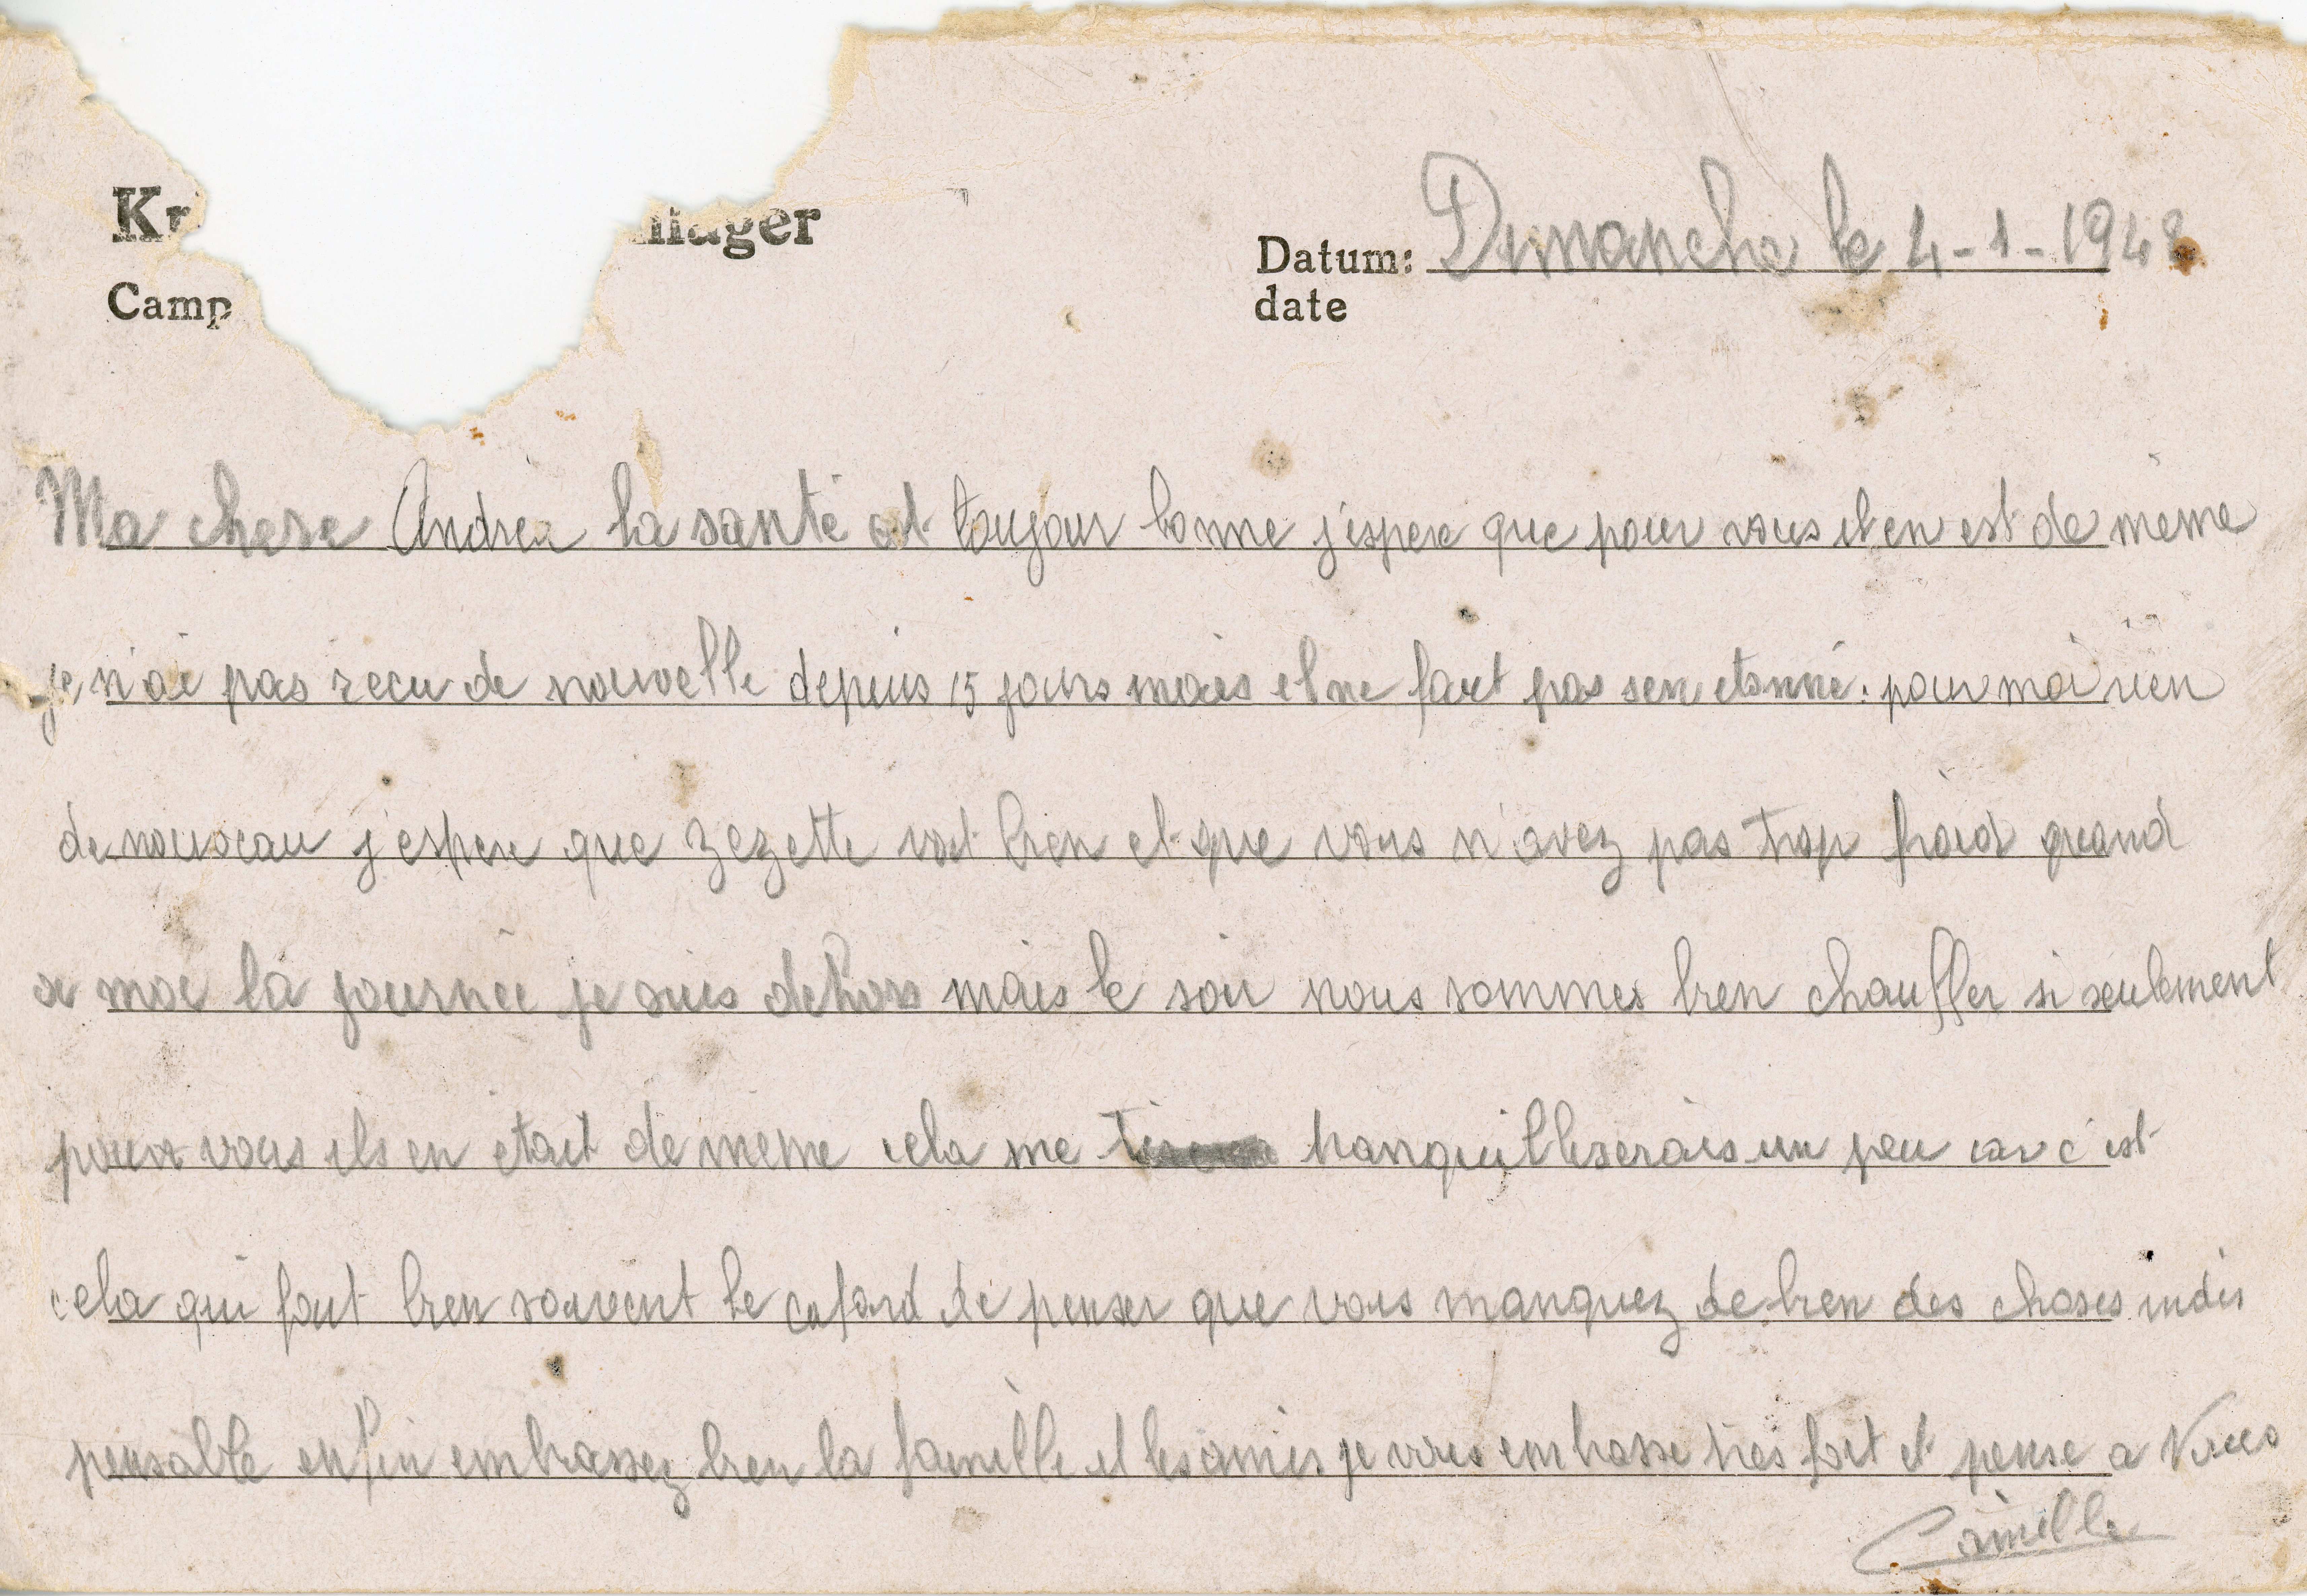 Kr
lager
Camp
Datum: Dimanche le 4-1-1942
date
Ma chere Andrea la santé est toujour bonne j'espere que pour vous il en est de même
je n'ai pas recu de nouvelle depuis 15 jours mais il ne faut pas sen etonné. pour moi rien
de nouveau j'espere que Zezette vat bien et que vous n'avez pas trop froid quand
a moi la journée je suis dehors mais le soir nous sommes bien chauffer si seulement
pour vous ils en etait de même cela me tranquilliserais un peu car c'est
cela qui fout bien souvent le cafard de penser que vous manquez de bien des choses indis
pensable enfin embrassez bien la famille et les amis je vous embrasse très fort et pense a Vous
Camille